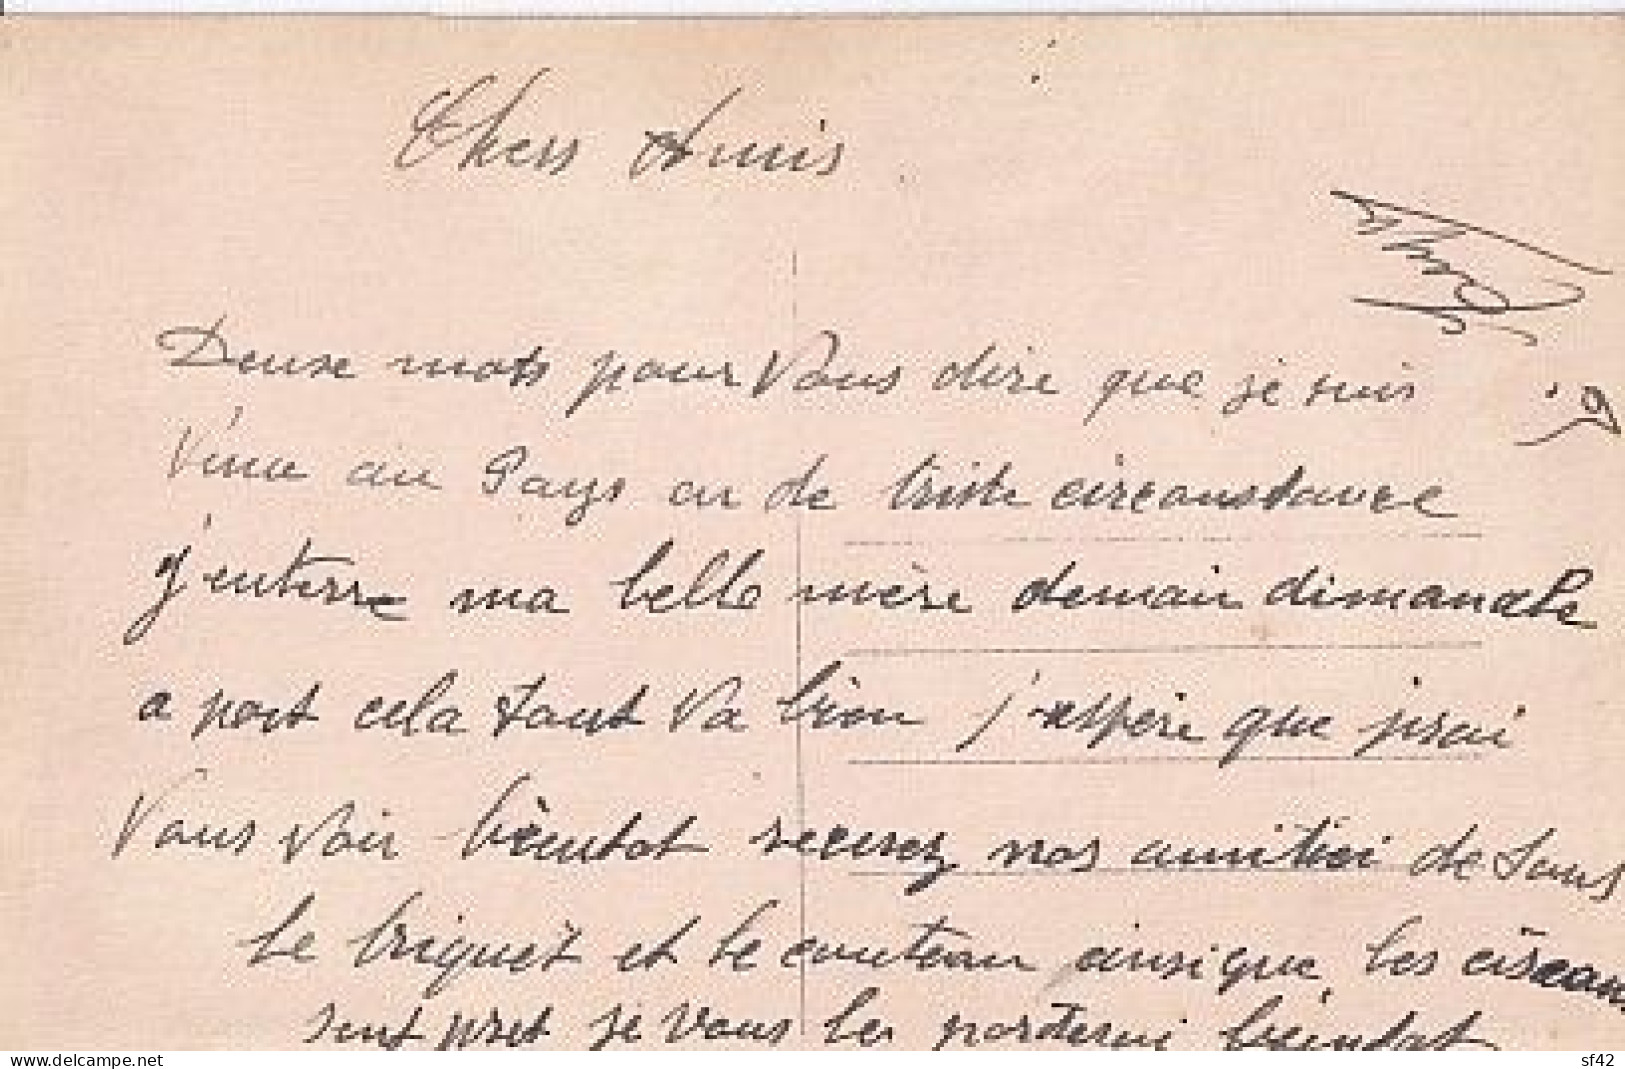 Chers Amis
Deuse mots pour Vous dire que je suis
Venu au Pays on de triste circonstance
j'enterre ma belle mère demain dimanche
a part cela tout va bien j'espère que j'irai
Vous voir bientot recevez nos amitiés de tous
le briquet et le couteau ainsi que les ciseaux
sont pret je vous les porterai bientot
www.delcampe.net
sf42